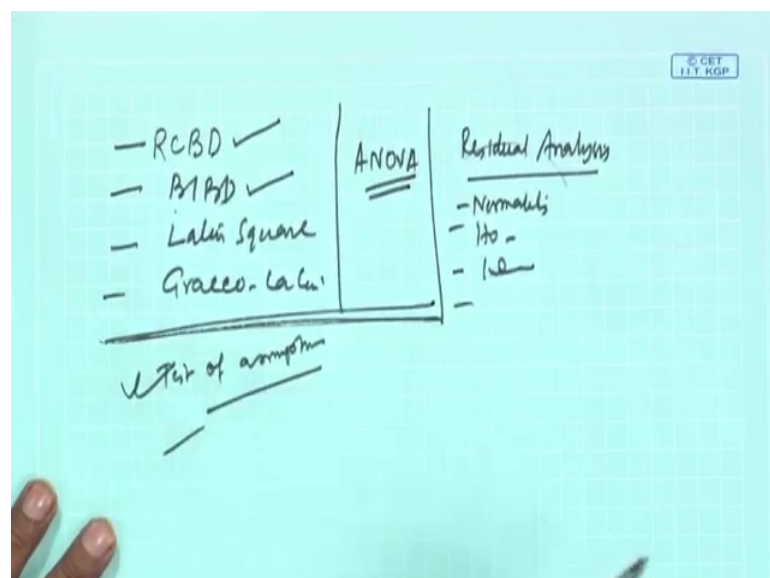 © CET
I.I.T. KGP
— RCBD ✓
— BIBD ✓
— Latin Square
— Graeco-Latin
ANOVA
Residual Analysis
- Normality
- Ho -
-
-
✓ Test of assumption